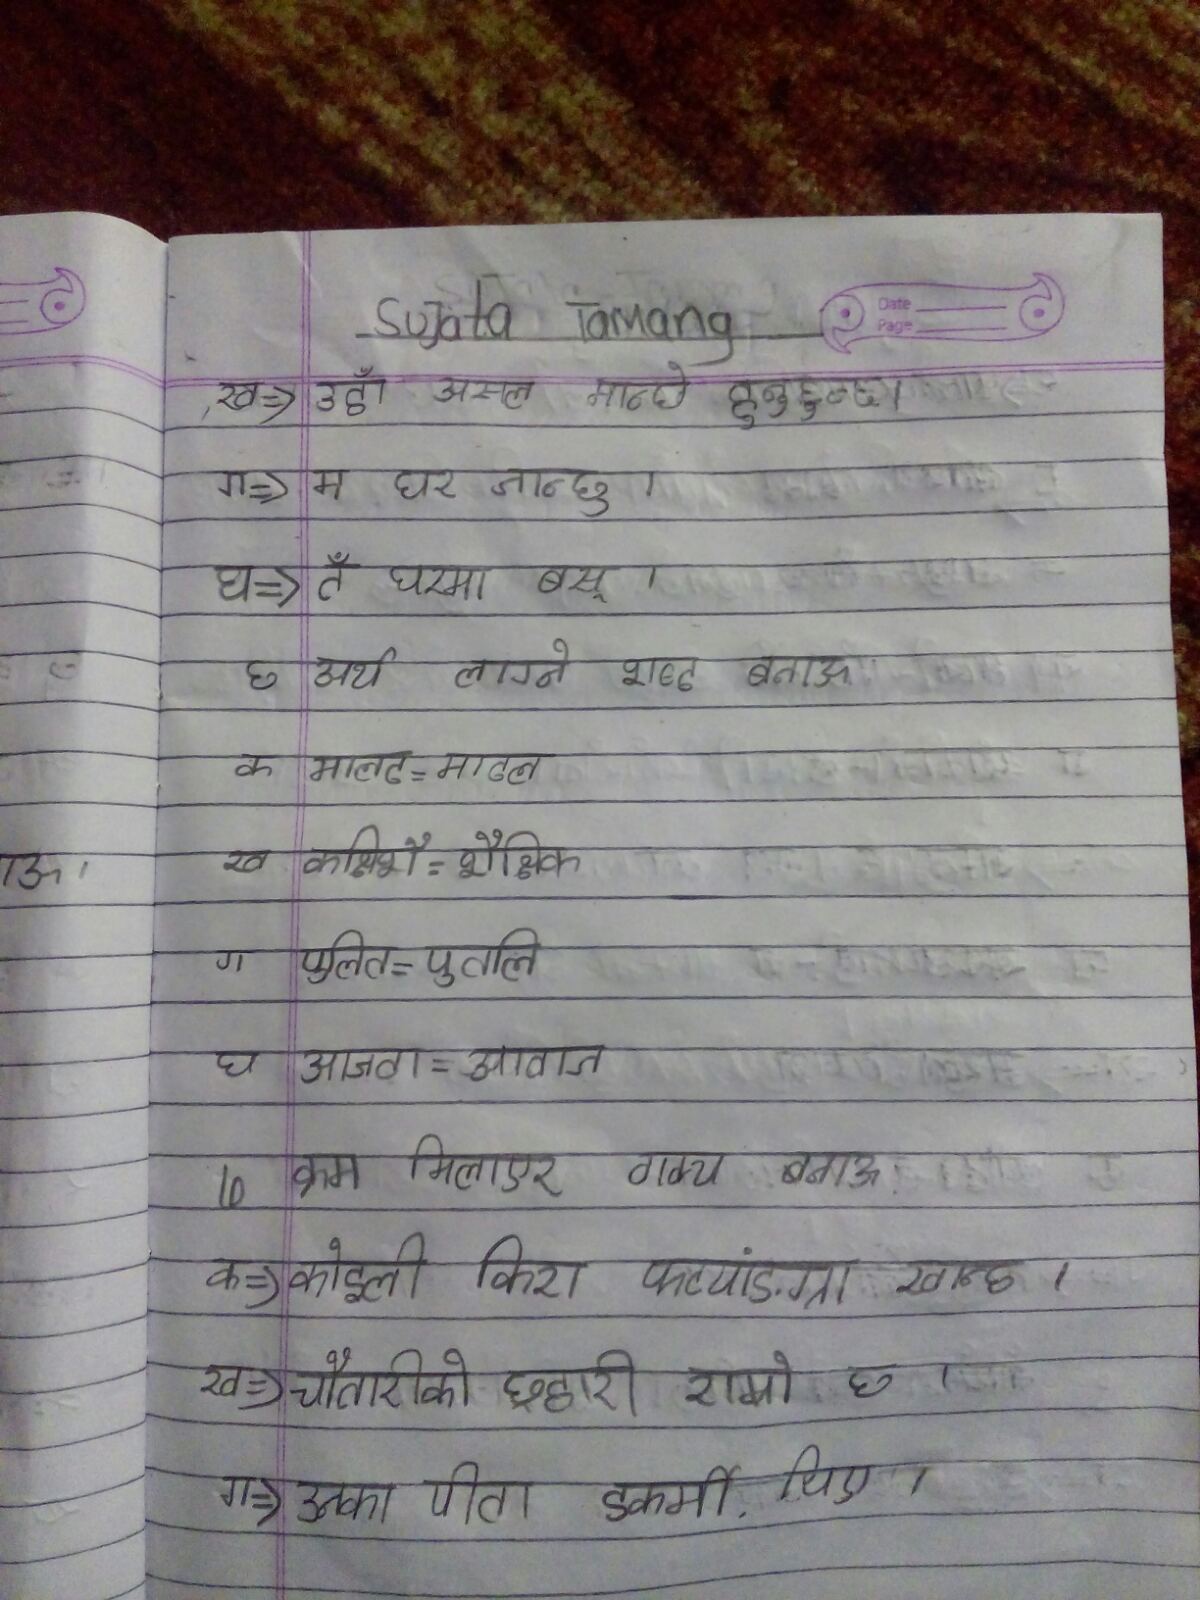 Sujata Tamang
Date
Page
ख⇒ उहाँ असल मान्छे हुनुहुन्छ।
ग⇒ म घर जान्छु ।
घ⇒ तँ घरमा बस् ।
छ अर्थ लाग्ने शब्द बनाऊ
क मालद = मादल
ख कक्षिशै = शैक्षिक
ग पुलित = पुतलि
घ आजवा = आवाज
ाऊ ।
10 क्रम मिलाएर वाक्य बनाऊ
क⇒ कोइली किरा फट्याङ्ग्रा खान्छ ।
ख⇒ चौतारीको छहारी राम्रो छ ।
ग⇒ उनका पीता डकर्मी थिए ।